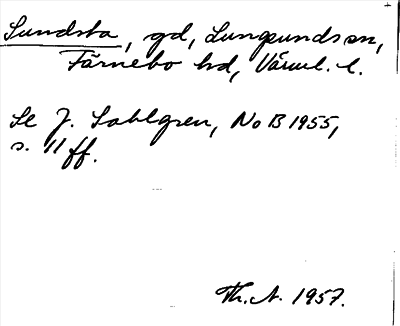 Sundsta, gd, Lungsunds sn,
Färnebo hd, Värml. l.
Se J. Sahlgren, NoB 1955,
s. 11 ff.
Th. A. 1957.